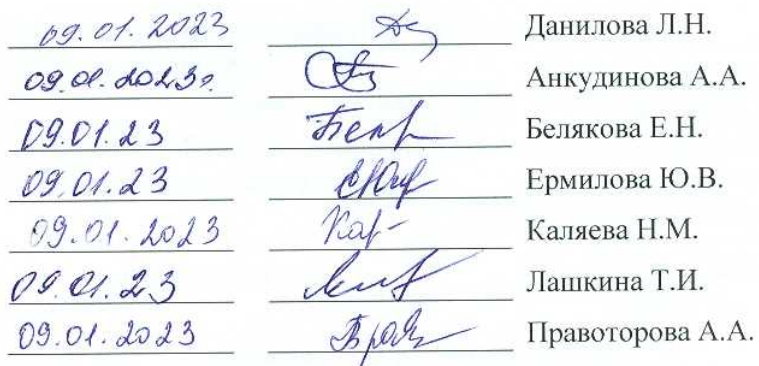 09.01.2023 Данилова Л.Н.
09.01.2023г. Анкудинова А.А.
09.01.23 Белякова Е.Н.
09.01.23 Ермилова Ю.В.
09.01.2023 Каляева Н.М.
09.01.23 Лашкина Т.И.
09.01.2023 Правоторова А.А.